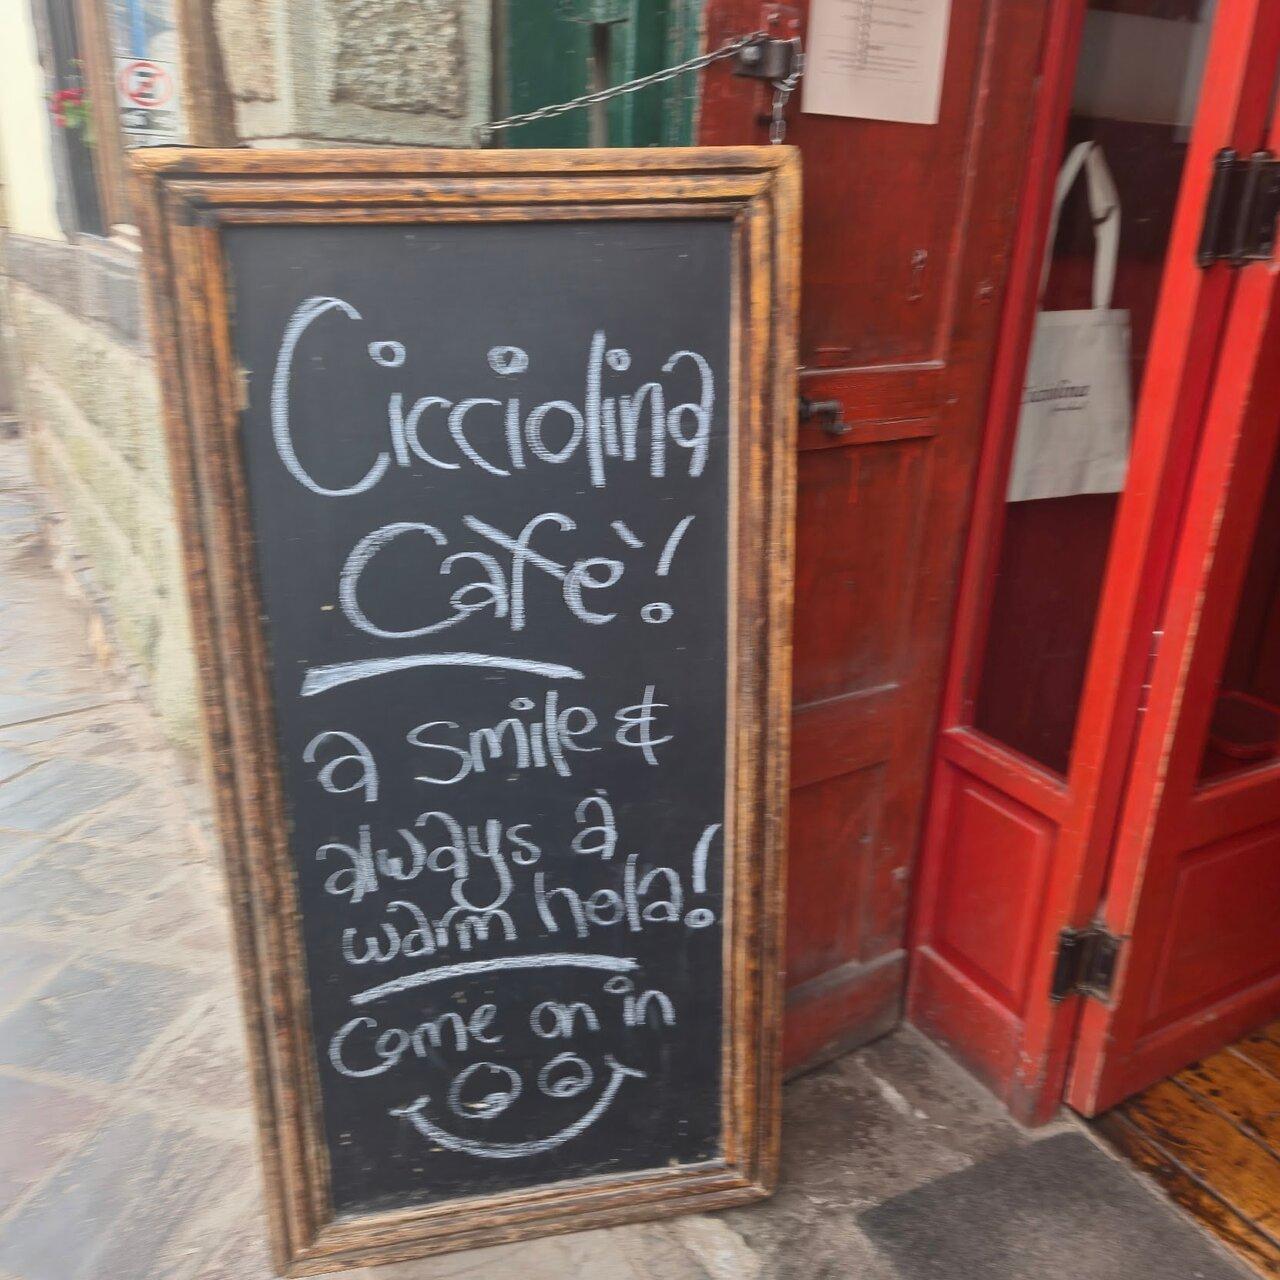 Cicciolina
Cafè!
a smile &
always a
warm hola!
Come on in